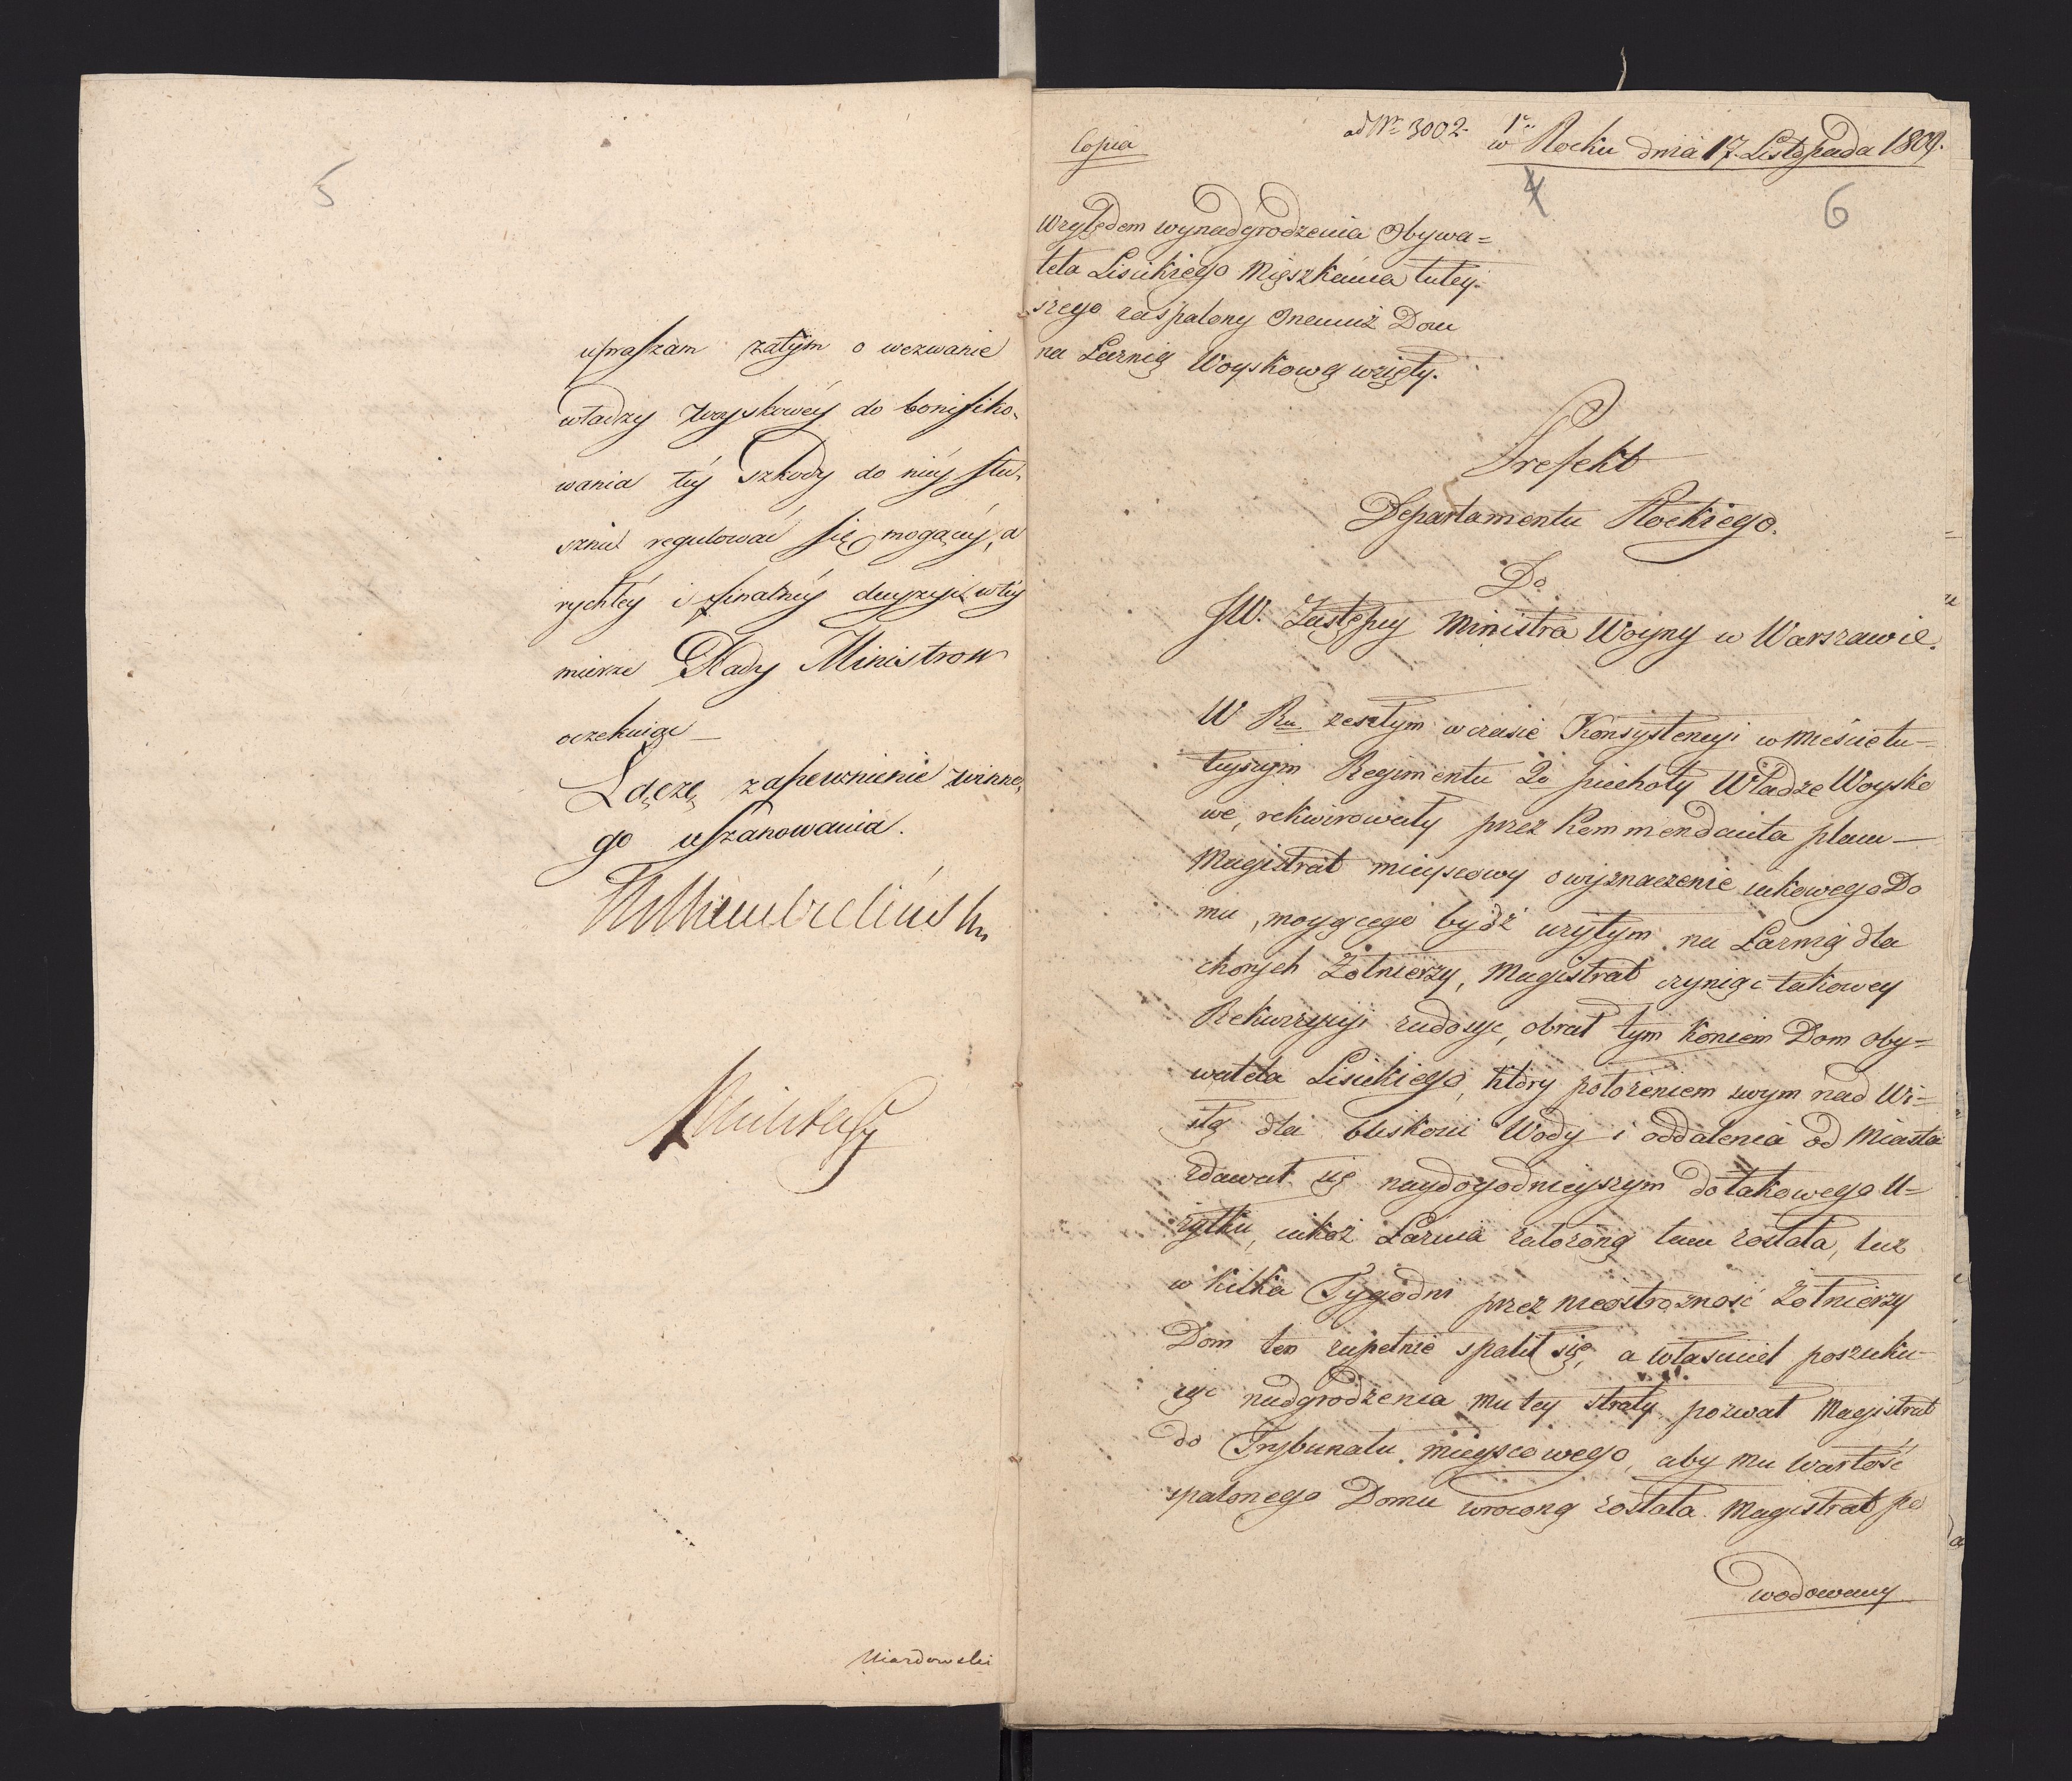 5
upraszam zatym o wezwanie
władzy woyskowéy do bonifiko-
wania téy szkody do niéy słu-
sznie regulować się mogącéy, a
rychłéy i finalnéy decyzyi w téy
mierze Rady Ministrow
oczekuiąc
Łączę zapewnienie winne-
go uszanowania.
Miardowski
Copia
ad Nr 3002.
w Płocku dnia 17. Listopada 1809.
4
6
Względem wynadgrodzenia Obywa=
tela Lisickiego Mięszkańca tutey-
szego za spalony Onemuż Dom
na Łaznią Woyskową wzięty.
Prefekt
Departamentu Płockiego.
Do
JW. Zastępcy Ministra Woyny w Warszawie.
W Ru zeszłym w czasie Konsystencyi w mieście tu-
teyszym Regimentu 2o piechoty Władze Woysko
we, rekwirowały przez Kommendanta placu
Magistrat mieyscowy o wyznaczenie iakowego Do
mu, mogącego bydź użytym na Łaznią dla
chorych Żołnierzy, Magistrat czyniąc takowey
Rekwizycyi zadosyc, obrał tym koncem Dom oby=
watela Lisickiego, który położeniem swym nad Wi=
słą dla bliskości Wody i oddalenia od Miasta
zdawał się naydogodnieyszym do takowego U=
żytku, iakoż Łaznia założoną tam została, lecz
w kilka Tygodni przez nieostrożność Żołnierzy
Dom ten zupełnie spalił się, a właściciel poszuku-
iąc nadgrodzenia mu tey straty pozwał Magistrat
do Trybunału mieyscowego, aby mu wartość
spalonego Domu wroconą została. Magistrat po
wodowany